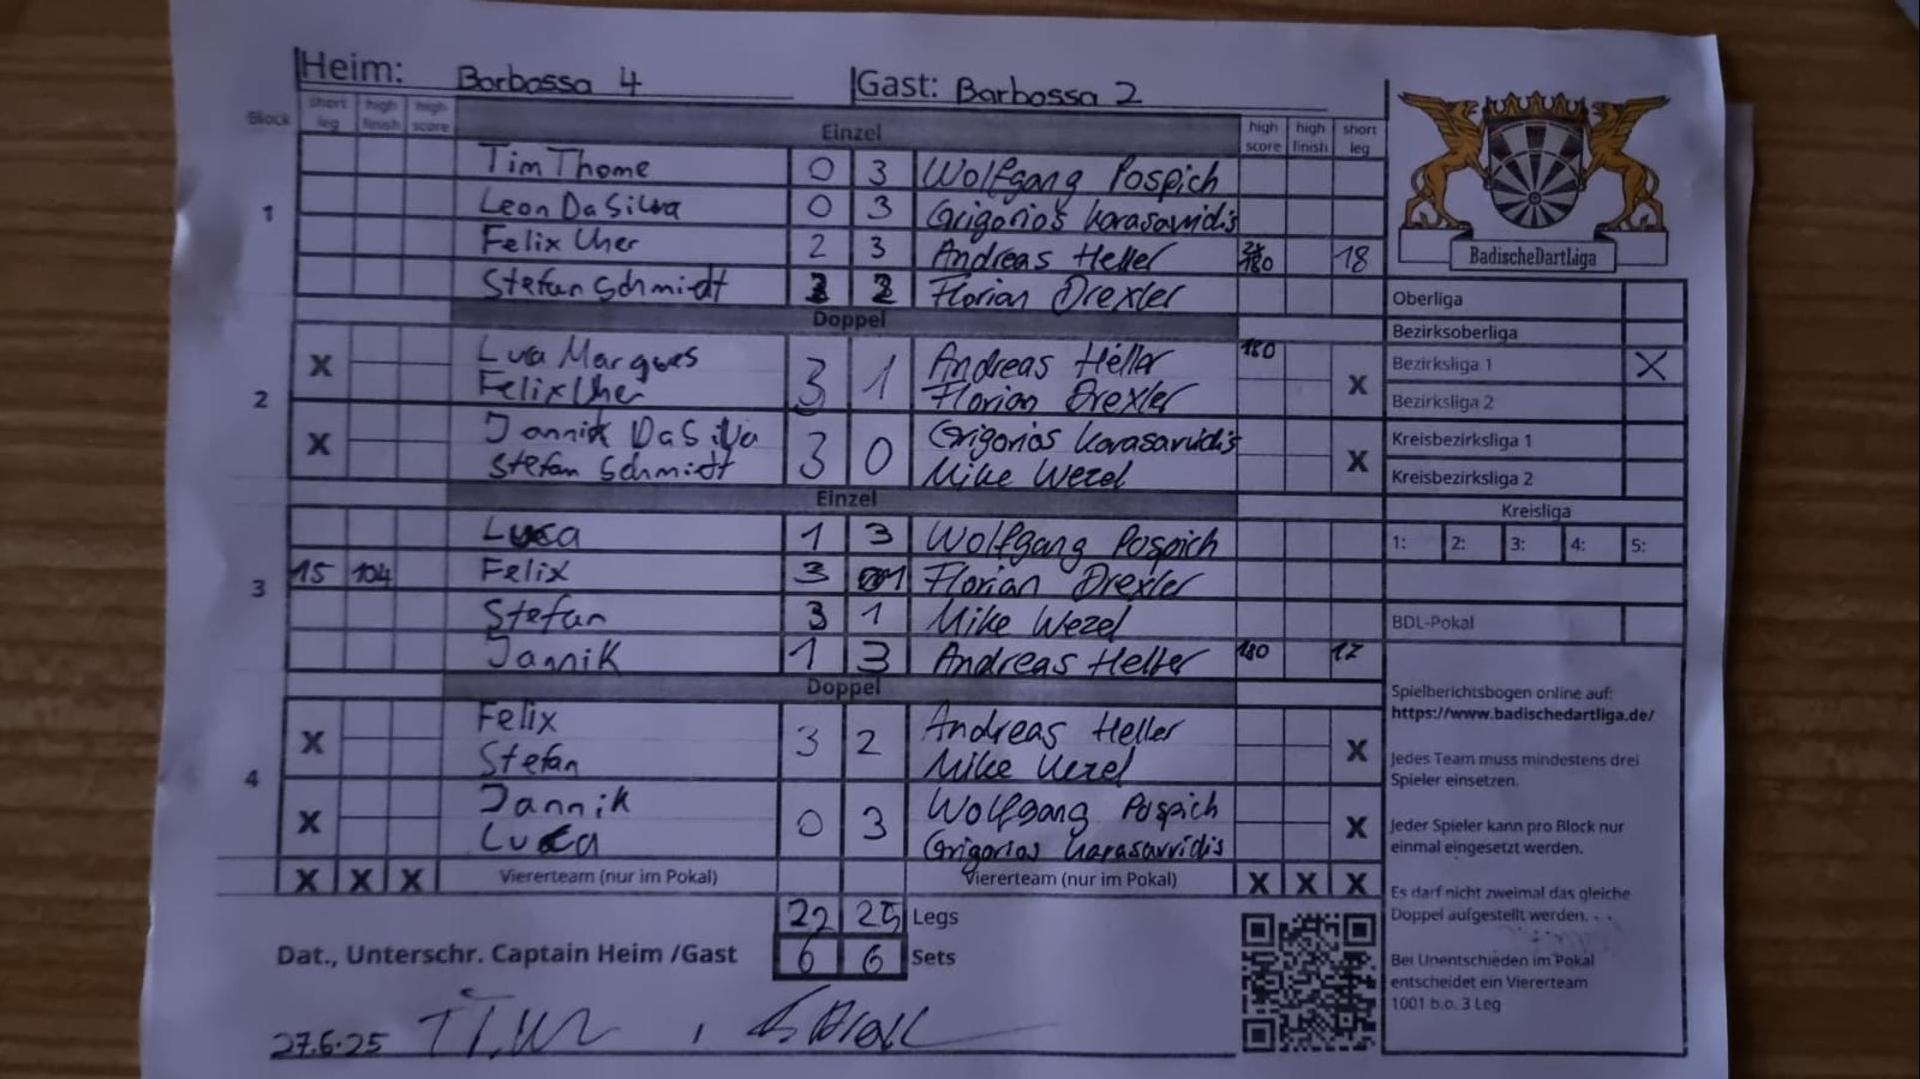 Heim: Barbossa 4 Gast: Barbossa 2
Block short leg high finish high score Einzel high score high finish short leg
1
Tim Thome 0 3 Wolfgang Pospich
Leon DaSilva 0 3 Grigorios Karasavridis
Felix Uher 2 3 Andreas Heller 2x 180 18
Stefan Schmidt 3 2 Florian Drexler
Doppel
2
X Luca Marques 3 1 Andreas Heller 180 X
Felix Uher Florian Drexler
X Jannik DaSilva 3 0 Grigorios Karasavridis X
Stefan Schmidt Mike Wezel
Einzel
3
Luca 1 3 Wolfgang Pospich
15 104 Felix 3 1 Florian Drexler
Stefan 3 1 Mike Wezel
Jannik 1 3 Andreas Heller 180 17
Doppel
4
X Felix 3 2 Andreas Heller X
Stefan Mike Wezel
X Jannik 0 3 Wolfgang Pospich X
Luca Grigorios Karasavridis
X X X Viererteam (nur im Pokal) Viererteam (nur im Pokal) X X X
22 25 Legs
Dat., Unterschr. Captain Heim /Gast 6 6 Sets
27.6.25
BadischeDartLiga
Oberliga
Bezirksoberliga
Bezirksliga 1 X
Bezirksliga 2
Kreisbezirksliga 1
Kreisbezirksliga 2
Kreisliga
1: 2: 3: 4: 5:
BDL-Pokal
Spielberichtsbogen online auf:
https://www.badischedartliga.de/
Jedes Team muss mindestens drei
Spieler einsetzen.
Jeder Spieler kann pro Block nur
einmal eingesetzt werden.
Es darf nicht zweimal das gleiche
Doppel aufgestellt werden.
Bei Unentschieden im Pokal
entscheidet ein Viererteam
1001 b.o. 3 Leg